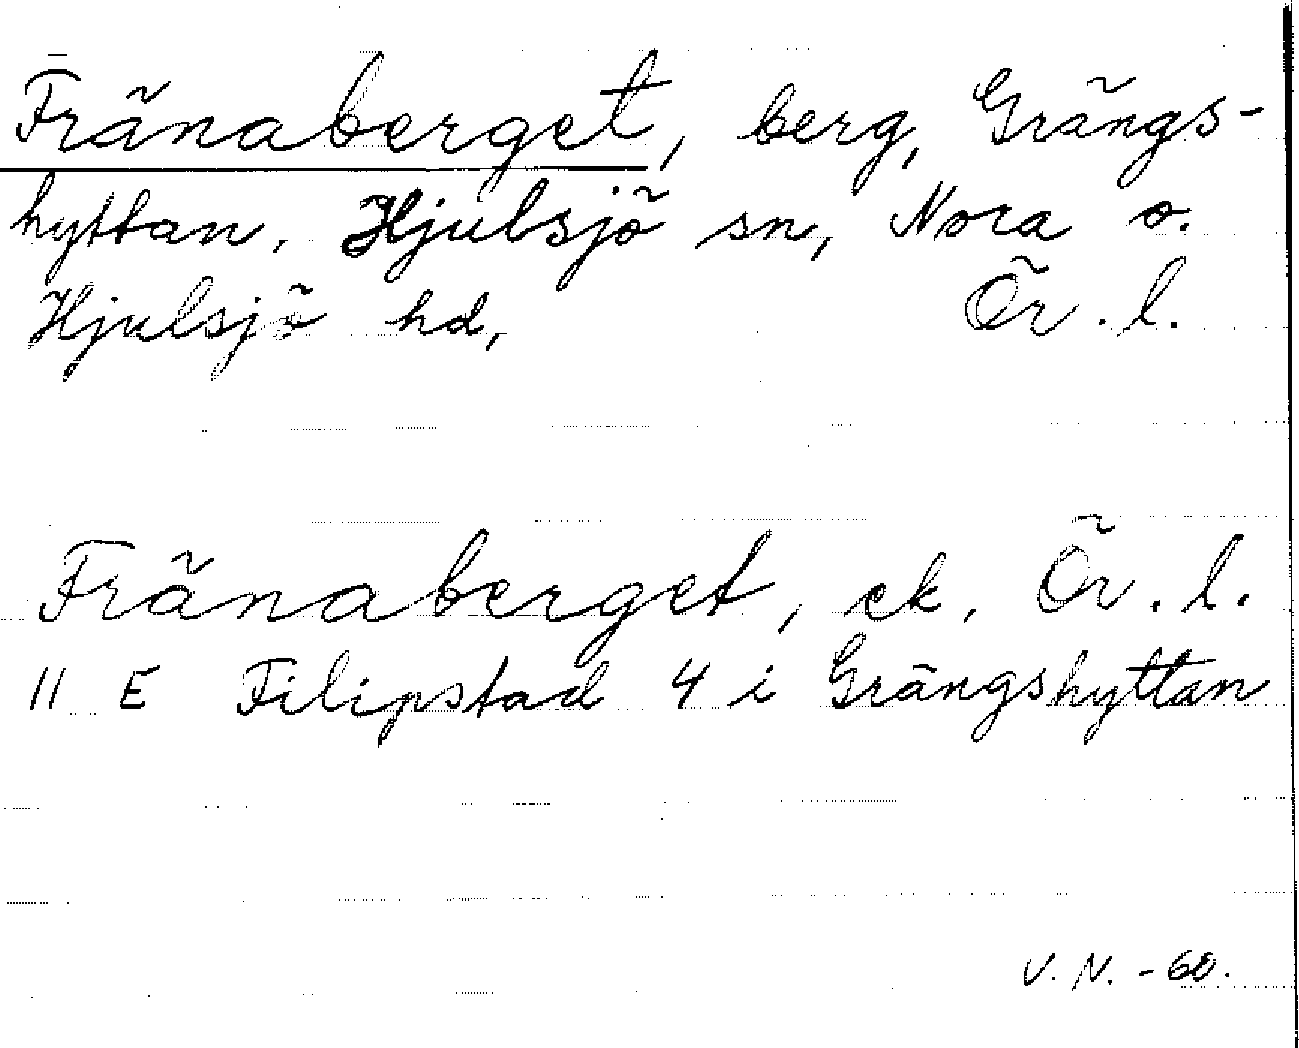 Fränaberget, berg, Grängs-
hyttan, Hjulsjö sn, Nora o.
Hjulsjö hd, Ör. l.
Fränaberget, ek, Ör. l.
11 E Filipstad 4 i Grängshyttan
V. N. -60.